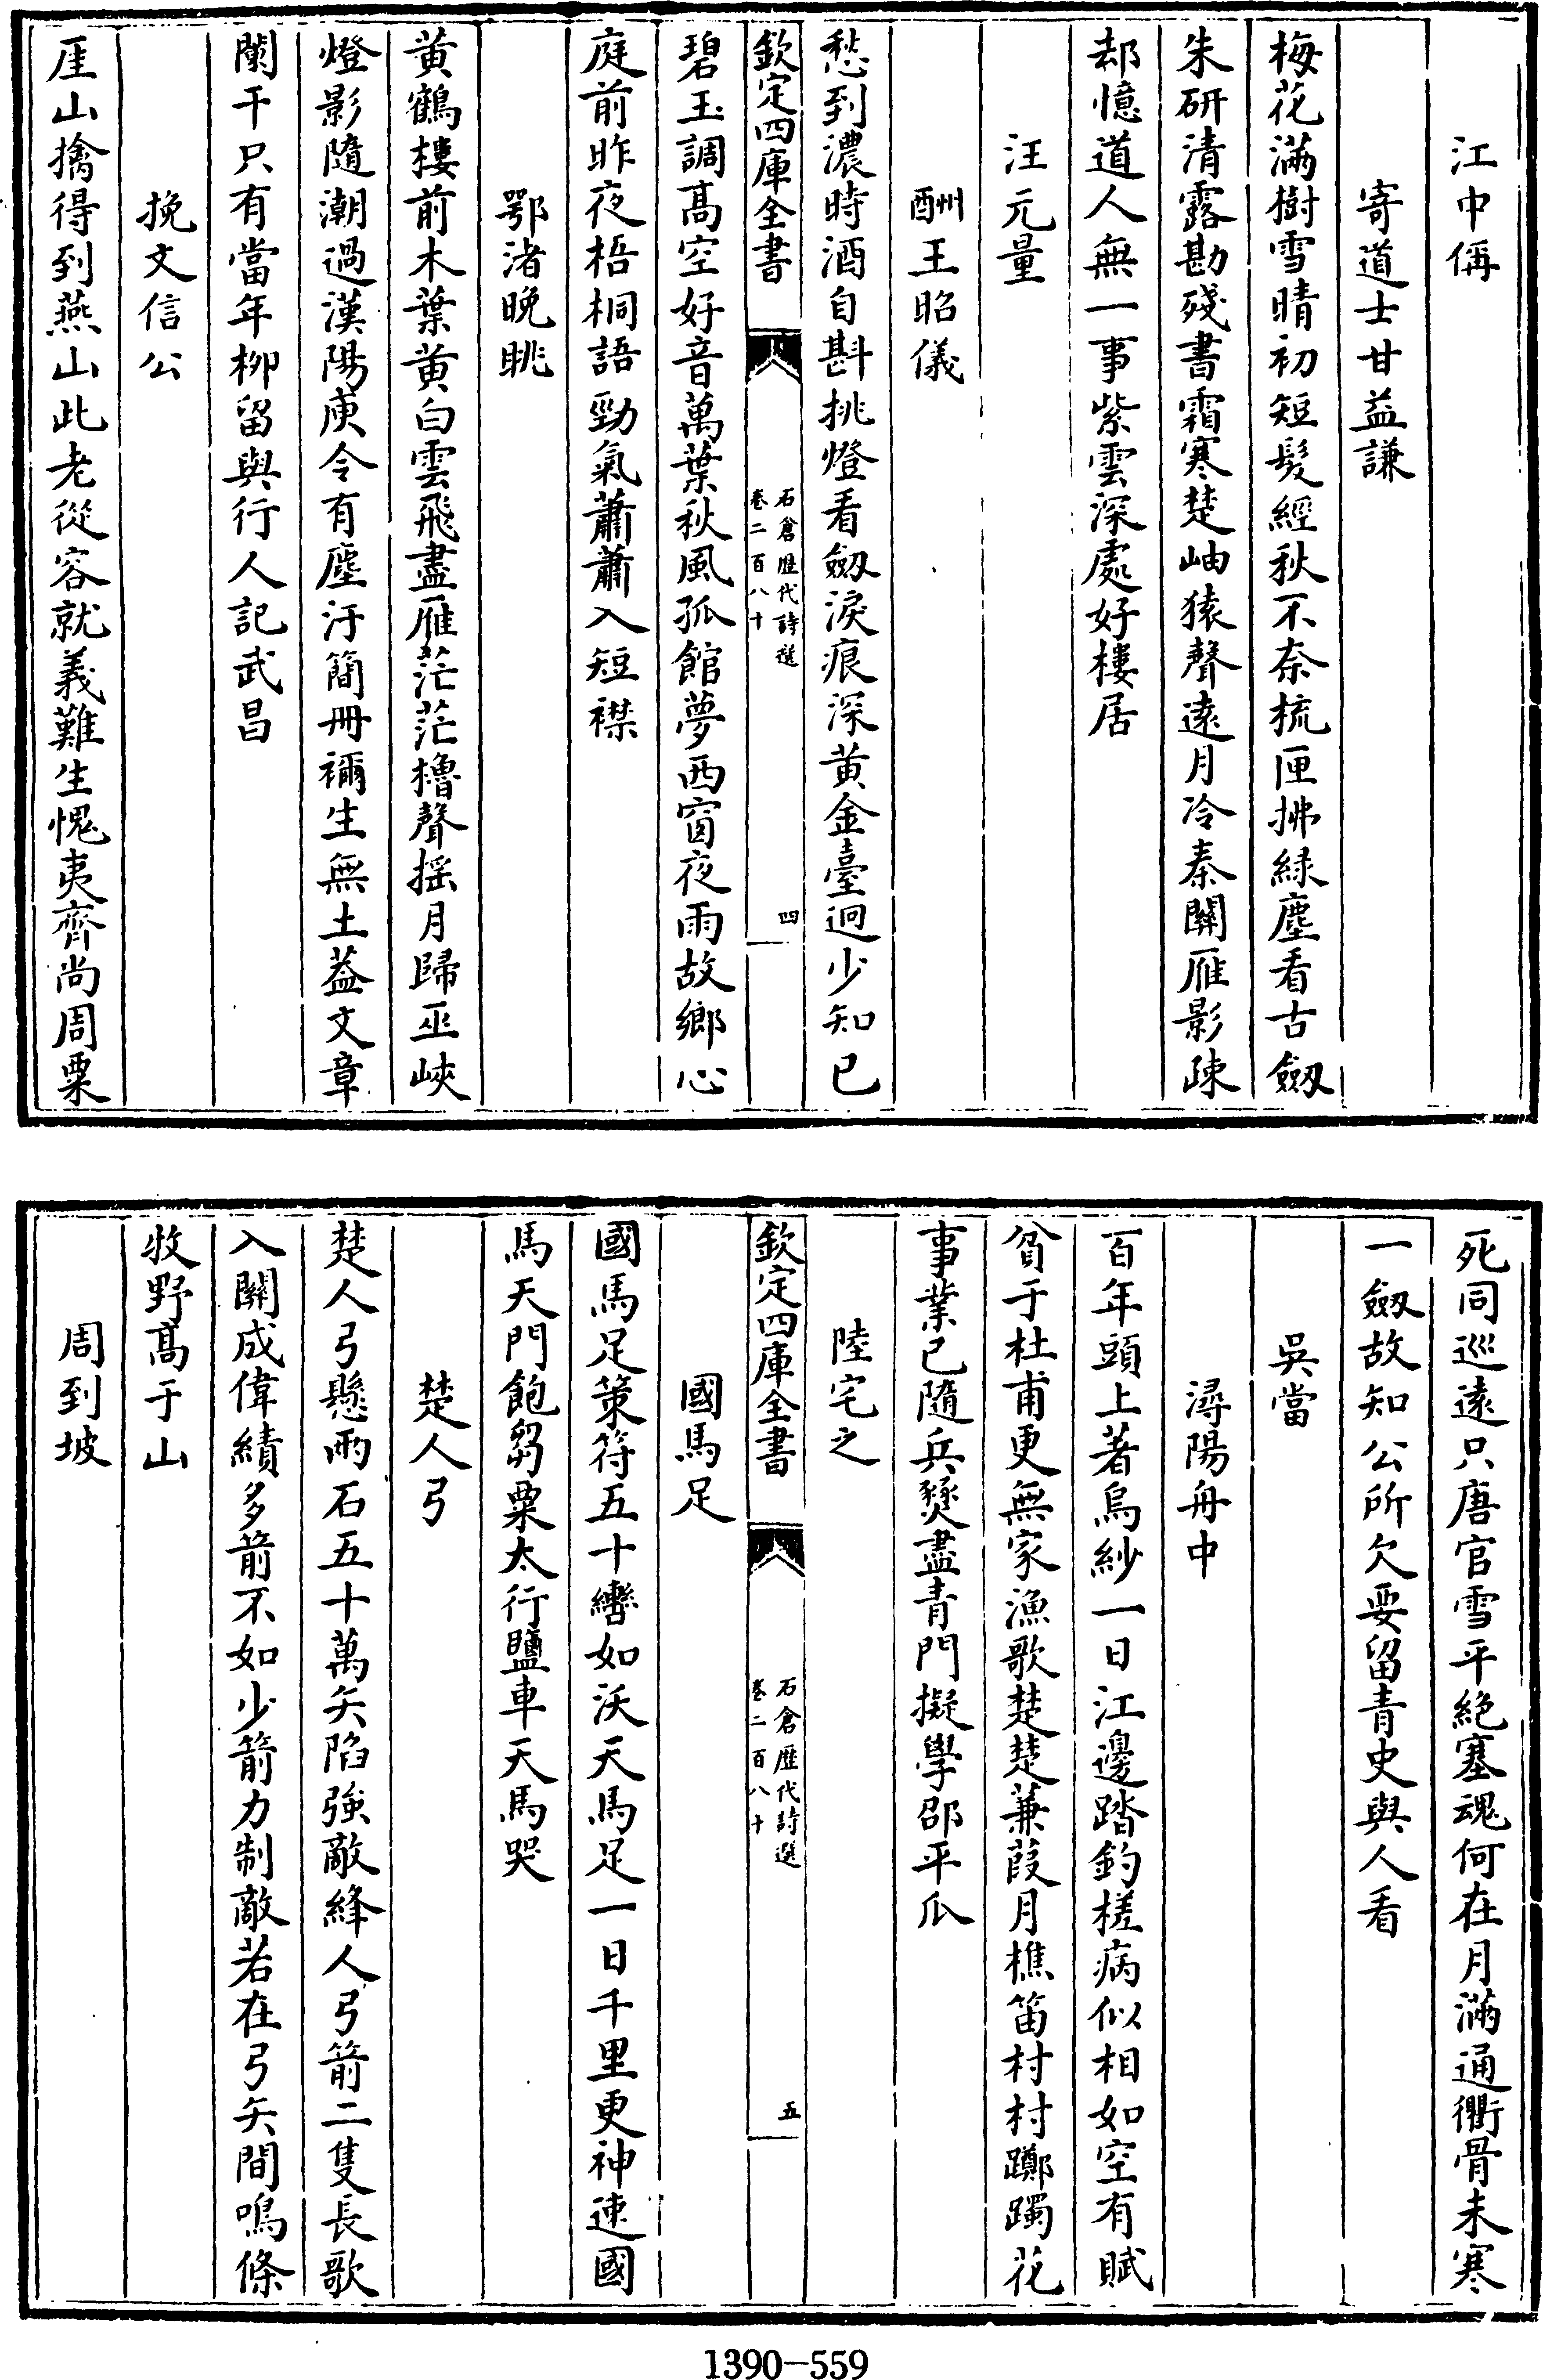 江中偁
寄道士甘益謙
梅花滿樹雪晴初短髮經秋不奈梳匣拂緑塵看古劔
朱研清露勘殘書霜寒楚岫猿聲逺月冷秦關雁影疎
却憶道人無一事紫雲深處好樓居
汪元量
酬王昭儀
愁到濃時酒自斟挑燈看劔淚痕深黄金臺迥少知已
欽定四庫全書
石倉歴代詩選
卷二百八十
四
碧玉調髙空好音萬葉秋風孤館夢西窗夜雨故鄉心
庭前昨夜梧桐語勁氣蕭蕭入短襟
鄂渚晚眺
黄鶴樓前木葉黄白雲飛盡雁茫茫櫓聲摇月歸巫峽
燈影隨潮過漢陽庾令有塵汙簡冊禰生無土葢文章
闌干只有當年柳留與行人記武昌
挽文信公
厓山擒得到燕山此老從容就義難生愧夷齊尚周粟
死同巡逺只唐官雪平絶塞魂何在月滿通衢骨未寒
一劔故知公所欠要留青史與人看
吳當
潯陽舟中
百年頭上著烏紗一日江邊踏釣槎病似相如空有賦
貧于杜甫更無家漁歌楚楚蒹葭月樵笛村村躑躅花
事業已隨兵燹盡青門擬學邵平瓜
陸宅之
欽定四庫全書
石倉歴代詩選
卷二百八十
五
國馬足
國馬足策符五十轡如沃天馬足一日千里更神速國
馬天門飽芻粟太行鹽車天馬哭
楚人弓
楚人弓懸兩石五十萬矢陷強敵絳人弓箭二隻長歌
入關成偉績多箭不如少箭力制敵若在弓矢間鳴條
牧野髙于山
周到坡
1390-559